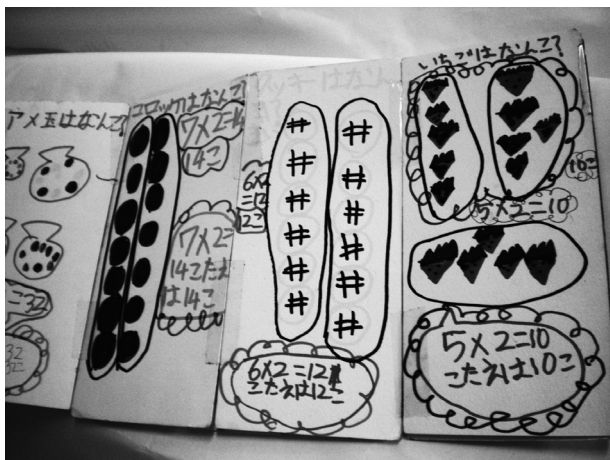 アメ玉はなんこ?
コロッケはなんこ?
7×2=14
14こ
7×2=
14こたえ
は14こ
クッキーはなん
6×2
=12
12こ
6×2=12
こたえは12こ
いちごはなんこ?
10こ
5×2=10
5×2=10
こたえは10こ